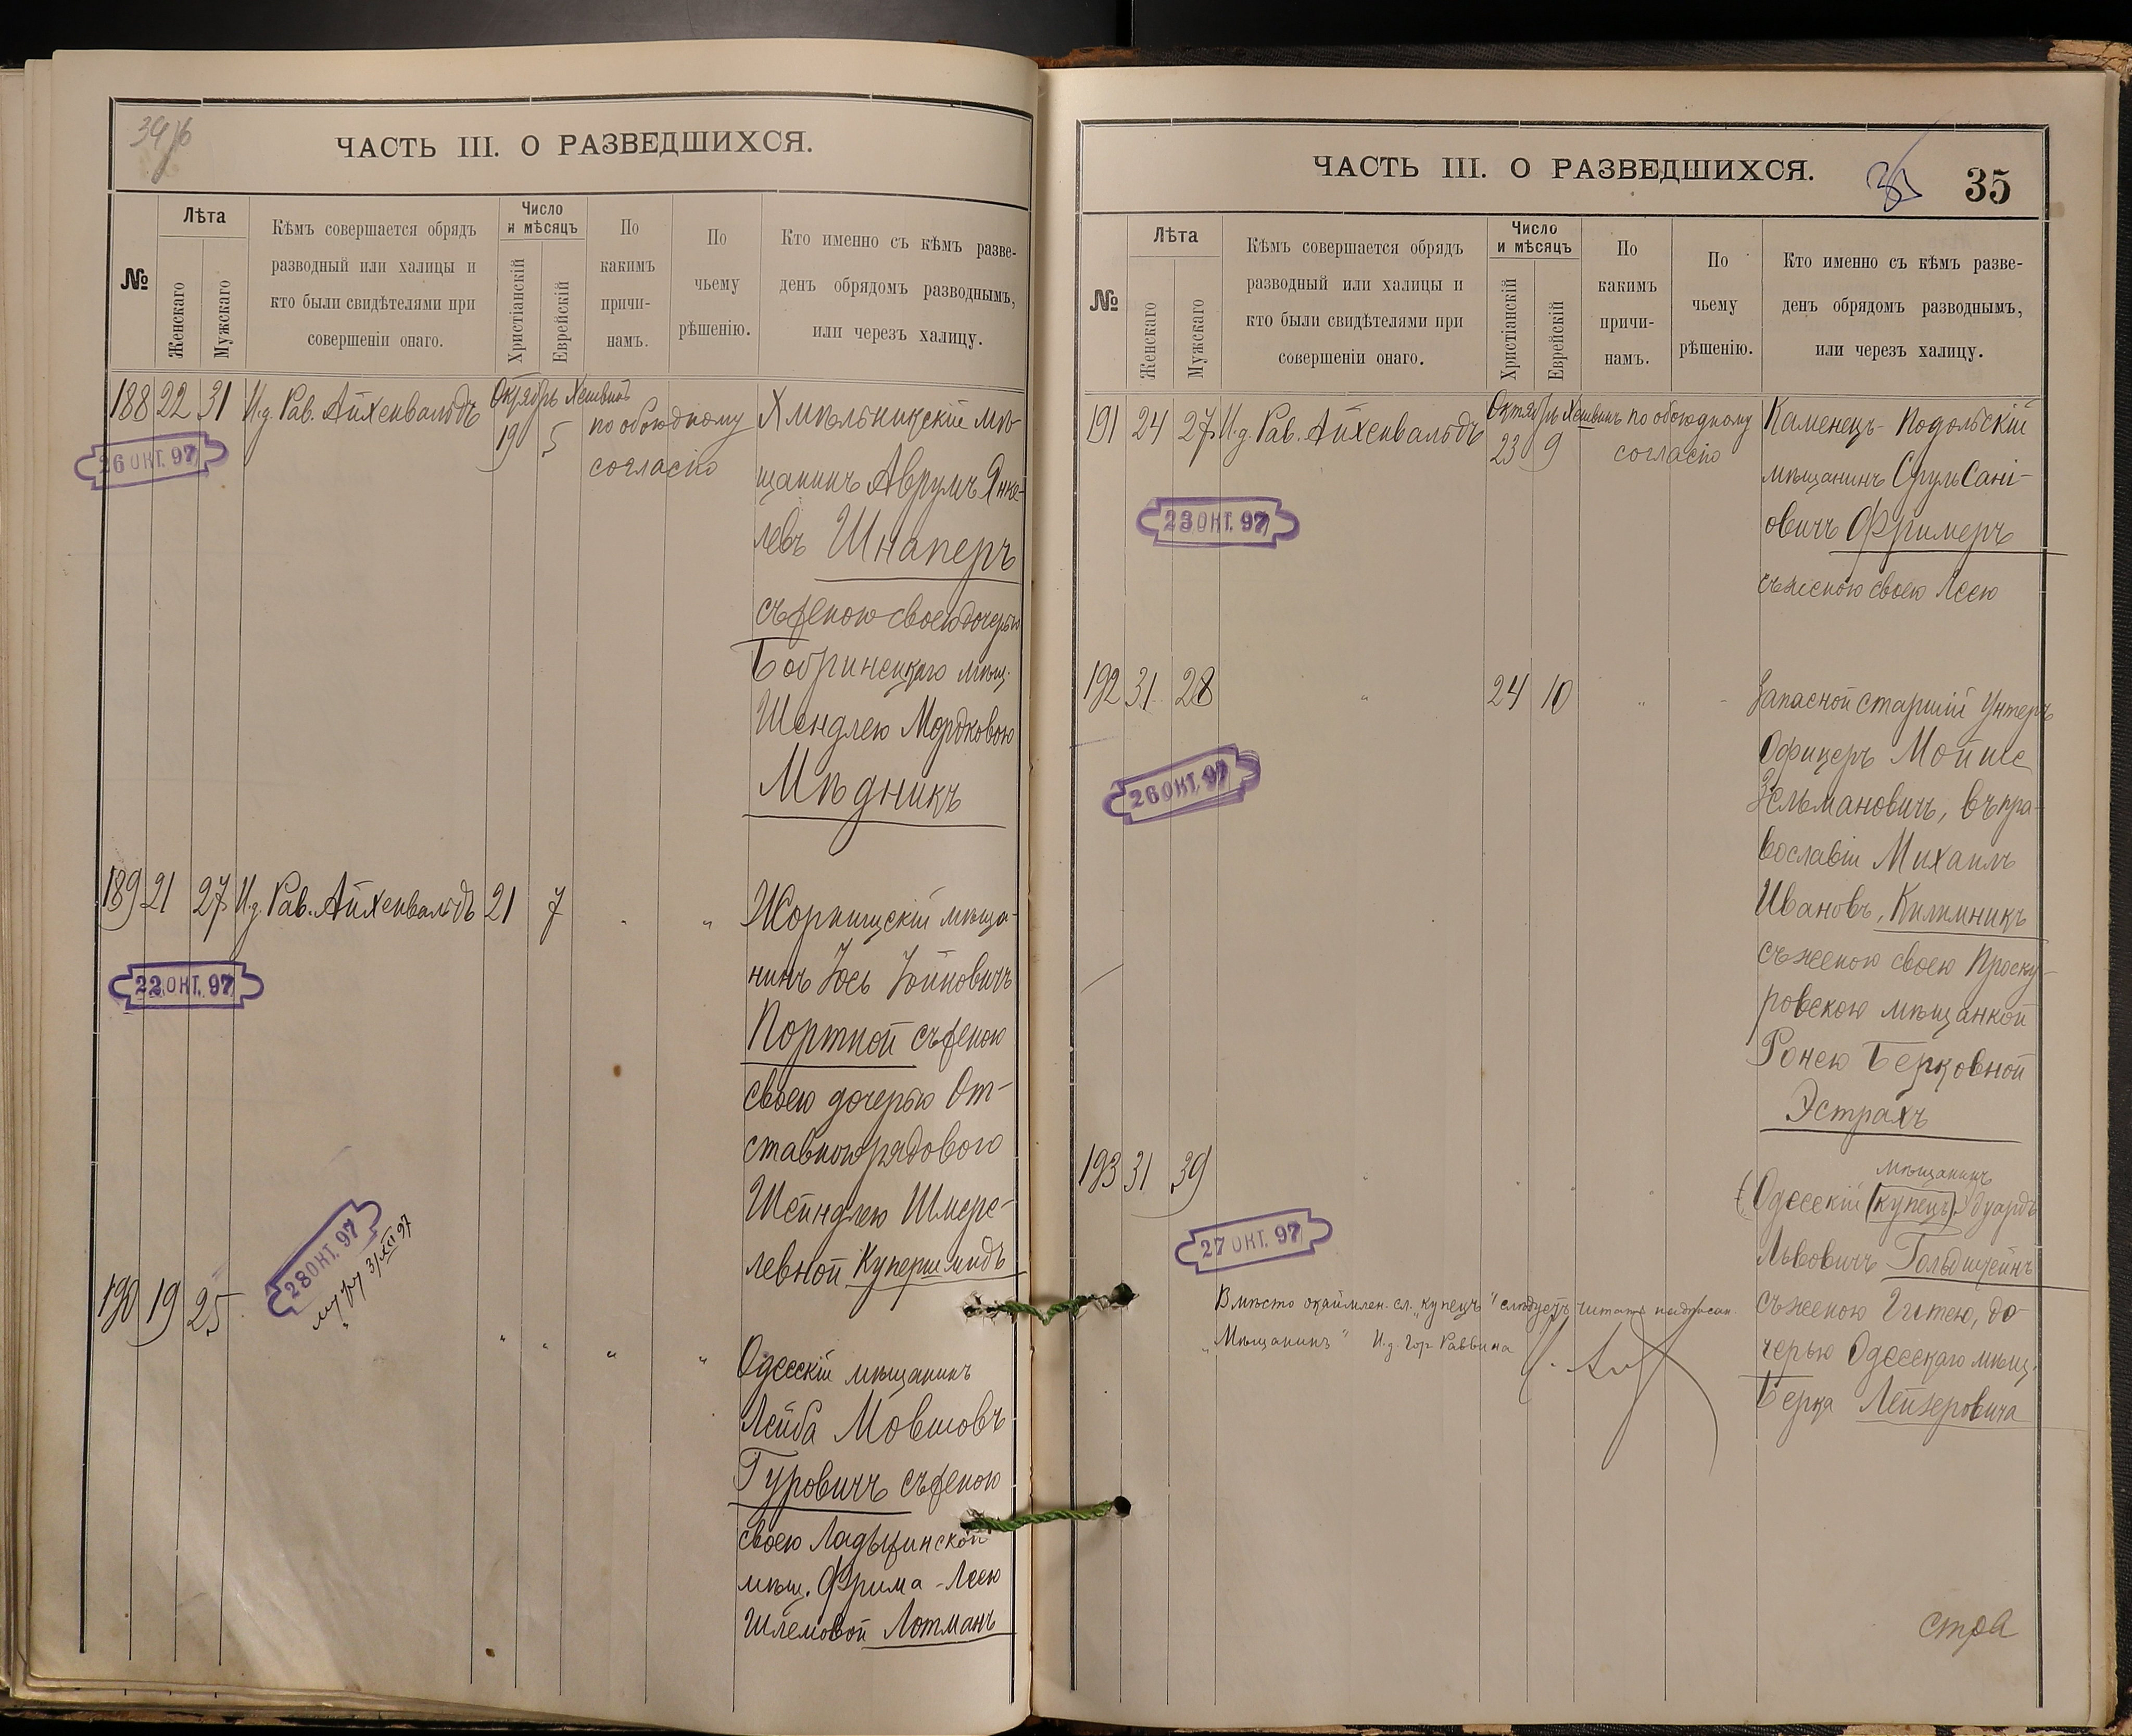 ЧАСТЬ III. О РАЗВЕДШИХСЯ.
№
Лѣта
Женскаго
Мужскаго
Кѣмъ совершается обрядъ
разводный или халицы и
кто были свидѣтелями при
совершеніи онаго.
Число
и мѣсяцъ
Христіанскій
Еврейскій
По
какимъ
причи-
намъ.
По
чьему
рѣшенію.
Кто именно съ кѣмъ разве-
денъ обрядомъ разводнымъ,
или черезъ халицу.
188 22 31 И.д. Рав. Айхенвальдъ Октябрь Хешвинъ
19 5
по обоюдному
согласію
26 ОКТ. 97
Хмѣльницкій мѣ-
щанинъ Аврумъ Янке-
левъ Шнаперъ
съ женою своею дочерью
Бобринецкаго мѣщ.
Шендлею Мордковою
Мѣдникъ
189 21 27 И.д. Рав. Айхенвальдъ 21 7 " "
22 ОКТ. 97
Жорнищскій мѣща-
нинъ Іось Іойновичъ
Портной съ женою
своею дочерью От-
ставного рядового
Шейндлею Шмере-
левной Купершмидъ
190 19 25 " " " "
28 ОКТ. 97
31/XII 97
Одесскій мѣщанинъ
Лейба Мовшовъ
Гуровичъ съ женою
своею Ладыжинской
мѣщ. Фрима-Леею
Шлемовой Лотманъ
ЧАСТЬ III. О РАЗВЕДШИХСЯ.
35 35
№
Лѣта
Женскаго
Мужскаго
Кѣмъ совершается обрядъ
разводный или халицы и
кто были свидѣтелями при
совершеніи онаго.
Число
и мѣсяцъ
Христіанскій
Еврейскій
По
какимъ
причи-
намъ.
По
чьему
рѣшенію.
Кто именно съ кѣмъ разве-
денъ обрядомъ разводнымъ,
или черезъ халицу.
191 24 27 И.д. Рав. Айхенвальдъ Октябрь Хешвинъ
23 9
по обоюдному
согласію
23 ОКТ. 97
Каменецъ-Подольскій
мѣщанинъ Сруль Сані-
овичъ Фримеръ
съ женою своею Леею
192 31 28 " 24 10 " "
26 ОКТ. 97
Запасной старшій Унтеръ
Офицеръ Мойше
Зельмановичъ, въ пра-
вославіи Михаилъ
Ивановъ, Килимникъ
съ женою своею Проску-
ровскою мѣщанкой
Ронею Берковной
Эстрахъ
193 31 39
27 ОКТ. 97
мѣщанинъ
Одесскій (купецъ) Эдуардъ
Львовичъ Гольдштейнъ
съ женою Гитею, до-
черью Одесскаго мѣщ.
Берка Лейзеровича
Вмѣсто окаймлен. сл. „купецъ" слѣдуетъ читать надписан.
„Мѣщанинъ" И.д. Гор. Раввина